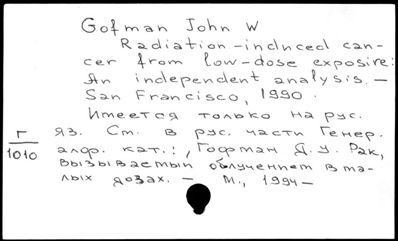 Gofman John W
Radiation-induced can-
cer from low-dose exposire:
An independent analysis. —
San Francisco, 1990.
Имеется только на рус.
яз. См. в рус. части Генер.
Г
1010
алф. кат.:, Гофман Д. У. Рак,
вызываемый облучением в ма-
лых дозах. — М., 1994 —